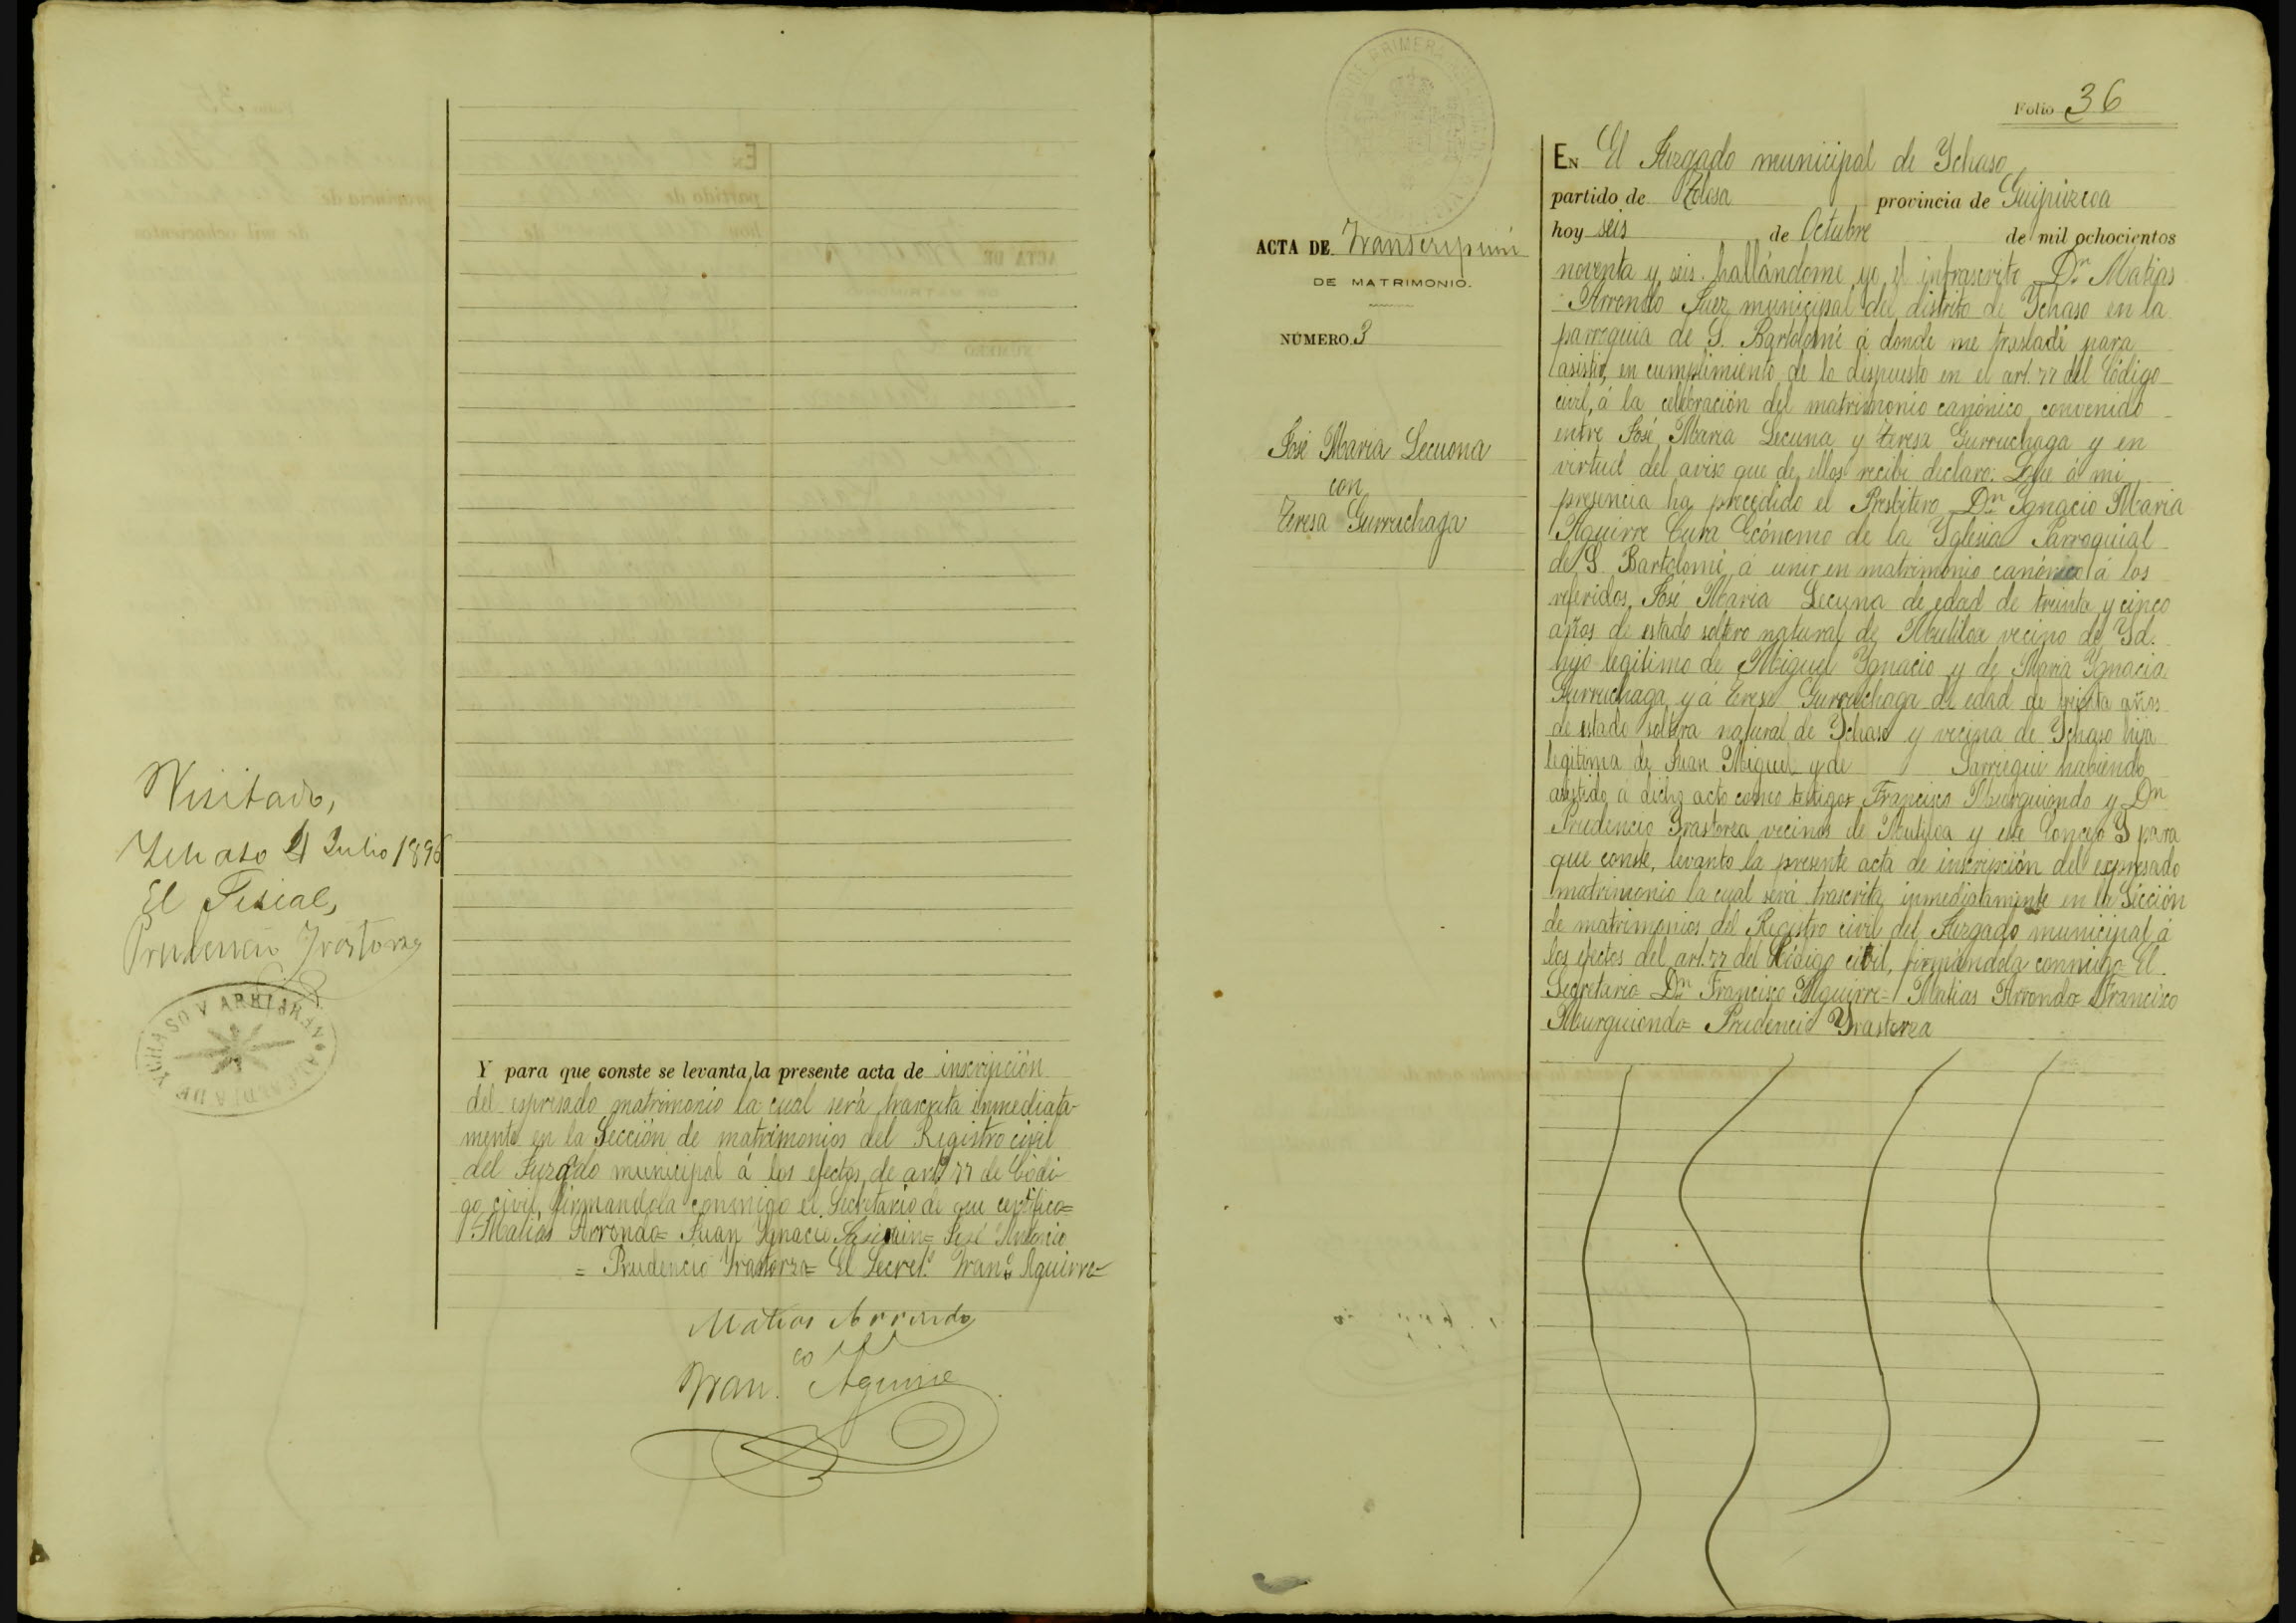 Visitado,
Ychaso 21 Julio 1896
El Fiscal,
Prudencio Yrastorza
Y para que conste se levanta la presente acta de inscripción
del espresado matrimonio la cual será trascrita inmediata-
mente en la Sección de matrimonios del Registro civil
del Juzgado municipal á los efectos de art. 77 de Codi-
go civil, firmandola conmigo el Secretario de que certifico=
Matias Arrondo= Juan Ygnacio = José Antonio
= Prudencio Yrastorza= El Secret.º Fran.co Aguirre=
Matias Arrondo
Fran.co Aguirre
Folio 36
ACTA DE Transcripcion
DE MATRIMONIO.
NÚMERO 3
José Maria Lecuona
con
Teresa Gurruchaga
EN El Juzgado municipal de Ychaso
partido de Tolosa provincia de Guipúzcoa
hoy seis de Octubre de mil ochocientos
noventa y seis hallándome yo el infrascrito Dn Matias
Arrondo Juez municipal del distrito de Ychaso en la
parroquia de S. Bartolomé á donde me trasladé para
asistir, en cumplimiento de lo dispuesto en el art. 77 del Código
civil, á la celebración del matrimonio canónico, convenido
entre José Maria Lecuna y Teresa Gurruchaga y en
virtud del aviso que de ellos recibi declaro: Que á mi
presencia ha procedido el Presbitero Dn Ygnacio Maria
Aguirre Cura Ecónomo de la Yglesia Parroquial
de S. Bartolomé, á unir en matrimonio canónico á los
referidos, José Maria Lecuna de edad de treinta y cinco
años de estado soltero natural de Mutiloa vecino de Yd.
hijo legitimo de Miguel Ygnacio y de Maria Ygnacia
Gurruchaga y á Teresa Gurruchaga de edad de treinta años
de estado soltera natural de Ychaso y vecina de Ychaso hija
legitima de Juan Miguel y de Sarriegui habiendo
asistido á dicho acto como testigos Francisco Murguiondo y Dn
Prudencio Yrastorza vecinos de Mutiloa y este Concejo Y para
que conste, levanto la presente acta de inscripción del expresado
matrimonio la cual será trascrita inmediatamente en la Sección
de matrimonios del Registro civil del Juzgado municipal á
los efectos del art. 77 del Código civil, firmándola conmigo El
Secretario= Dn Francisco Aguirre= Matias Arrondo= Francisco
Murguiondo= Prudencio Yrastorza